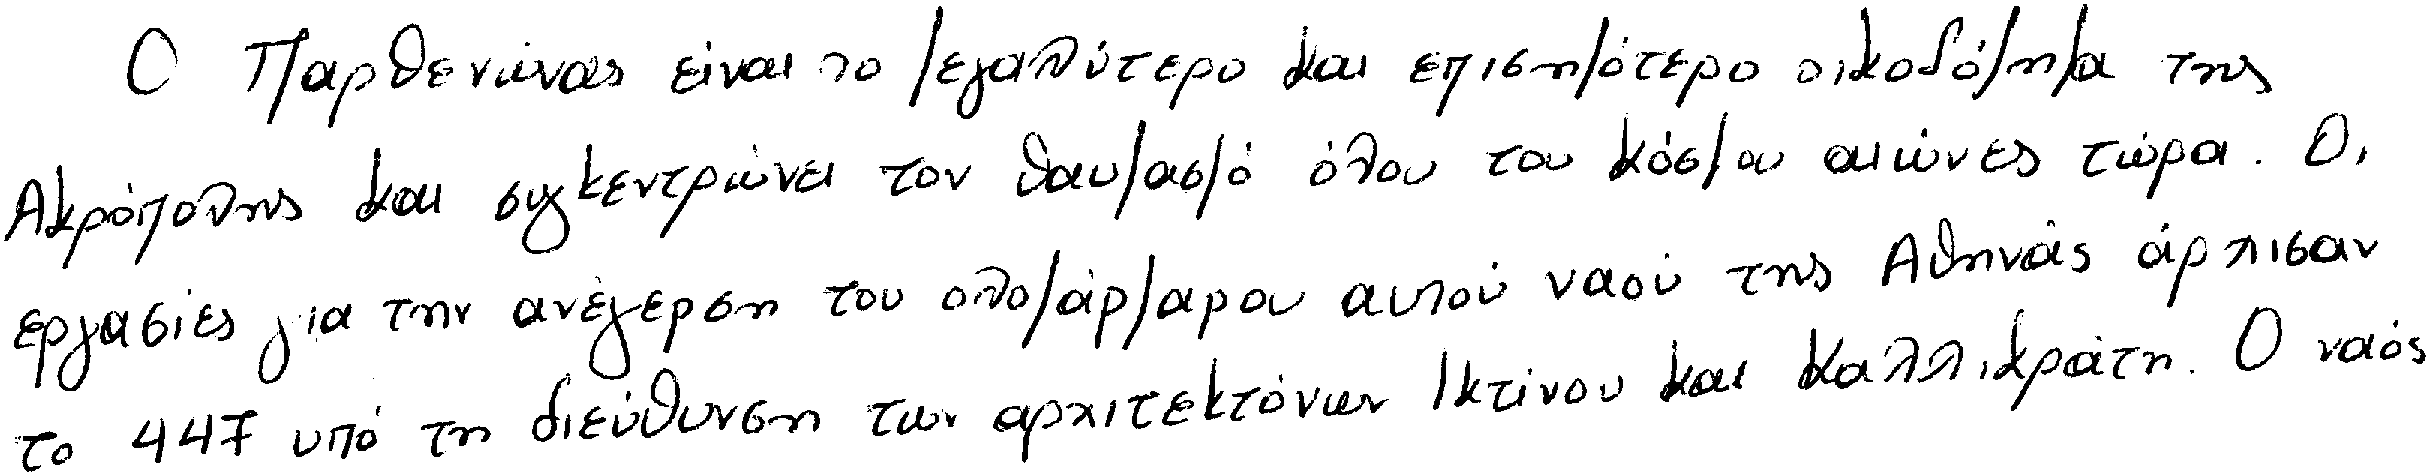 Ο Παρθενώνας είναι το μεγαλύτερο και επισημότερο οικοδόμημα της
Ακρόπολης και συγκεντρώνει τον θαυμασμό όλου του κόσμου αιώνες τώρα. Οι
εργασίες για την ανέγερση του ολομάρμαρου αυτού ναού της Αθηνάς άρχισαν
το 447 υπό τη διεύθυνση των αρχιτεκτόνων Ικτίνου και Καλλικράτη. Ο ναός